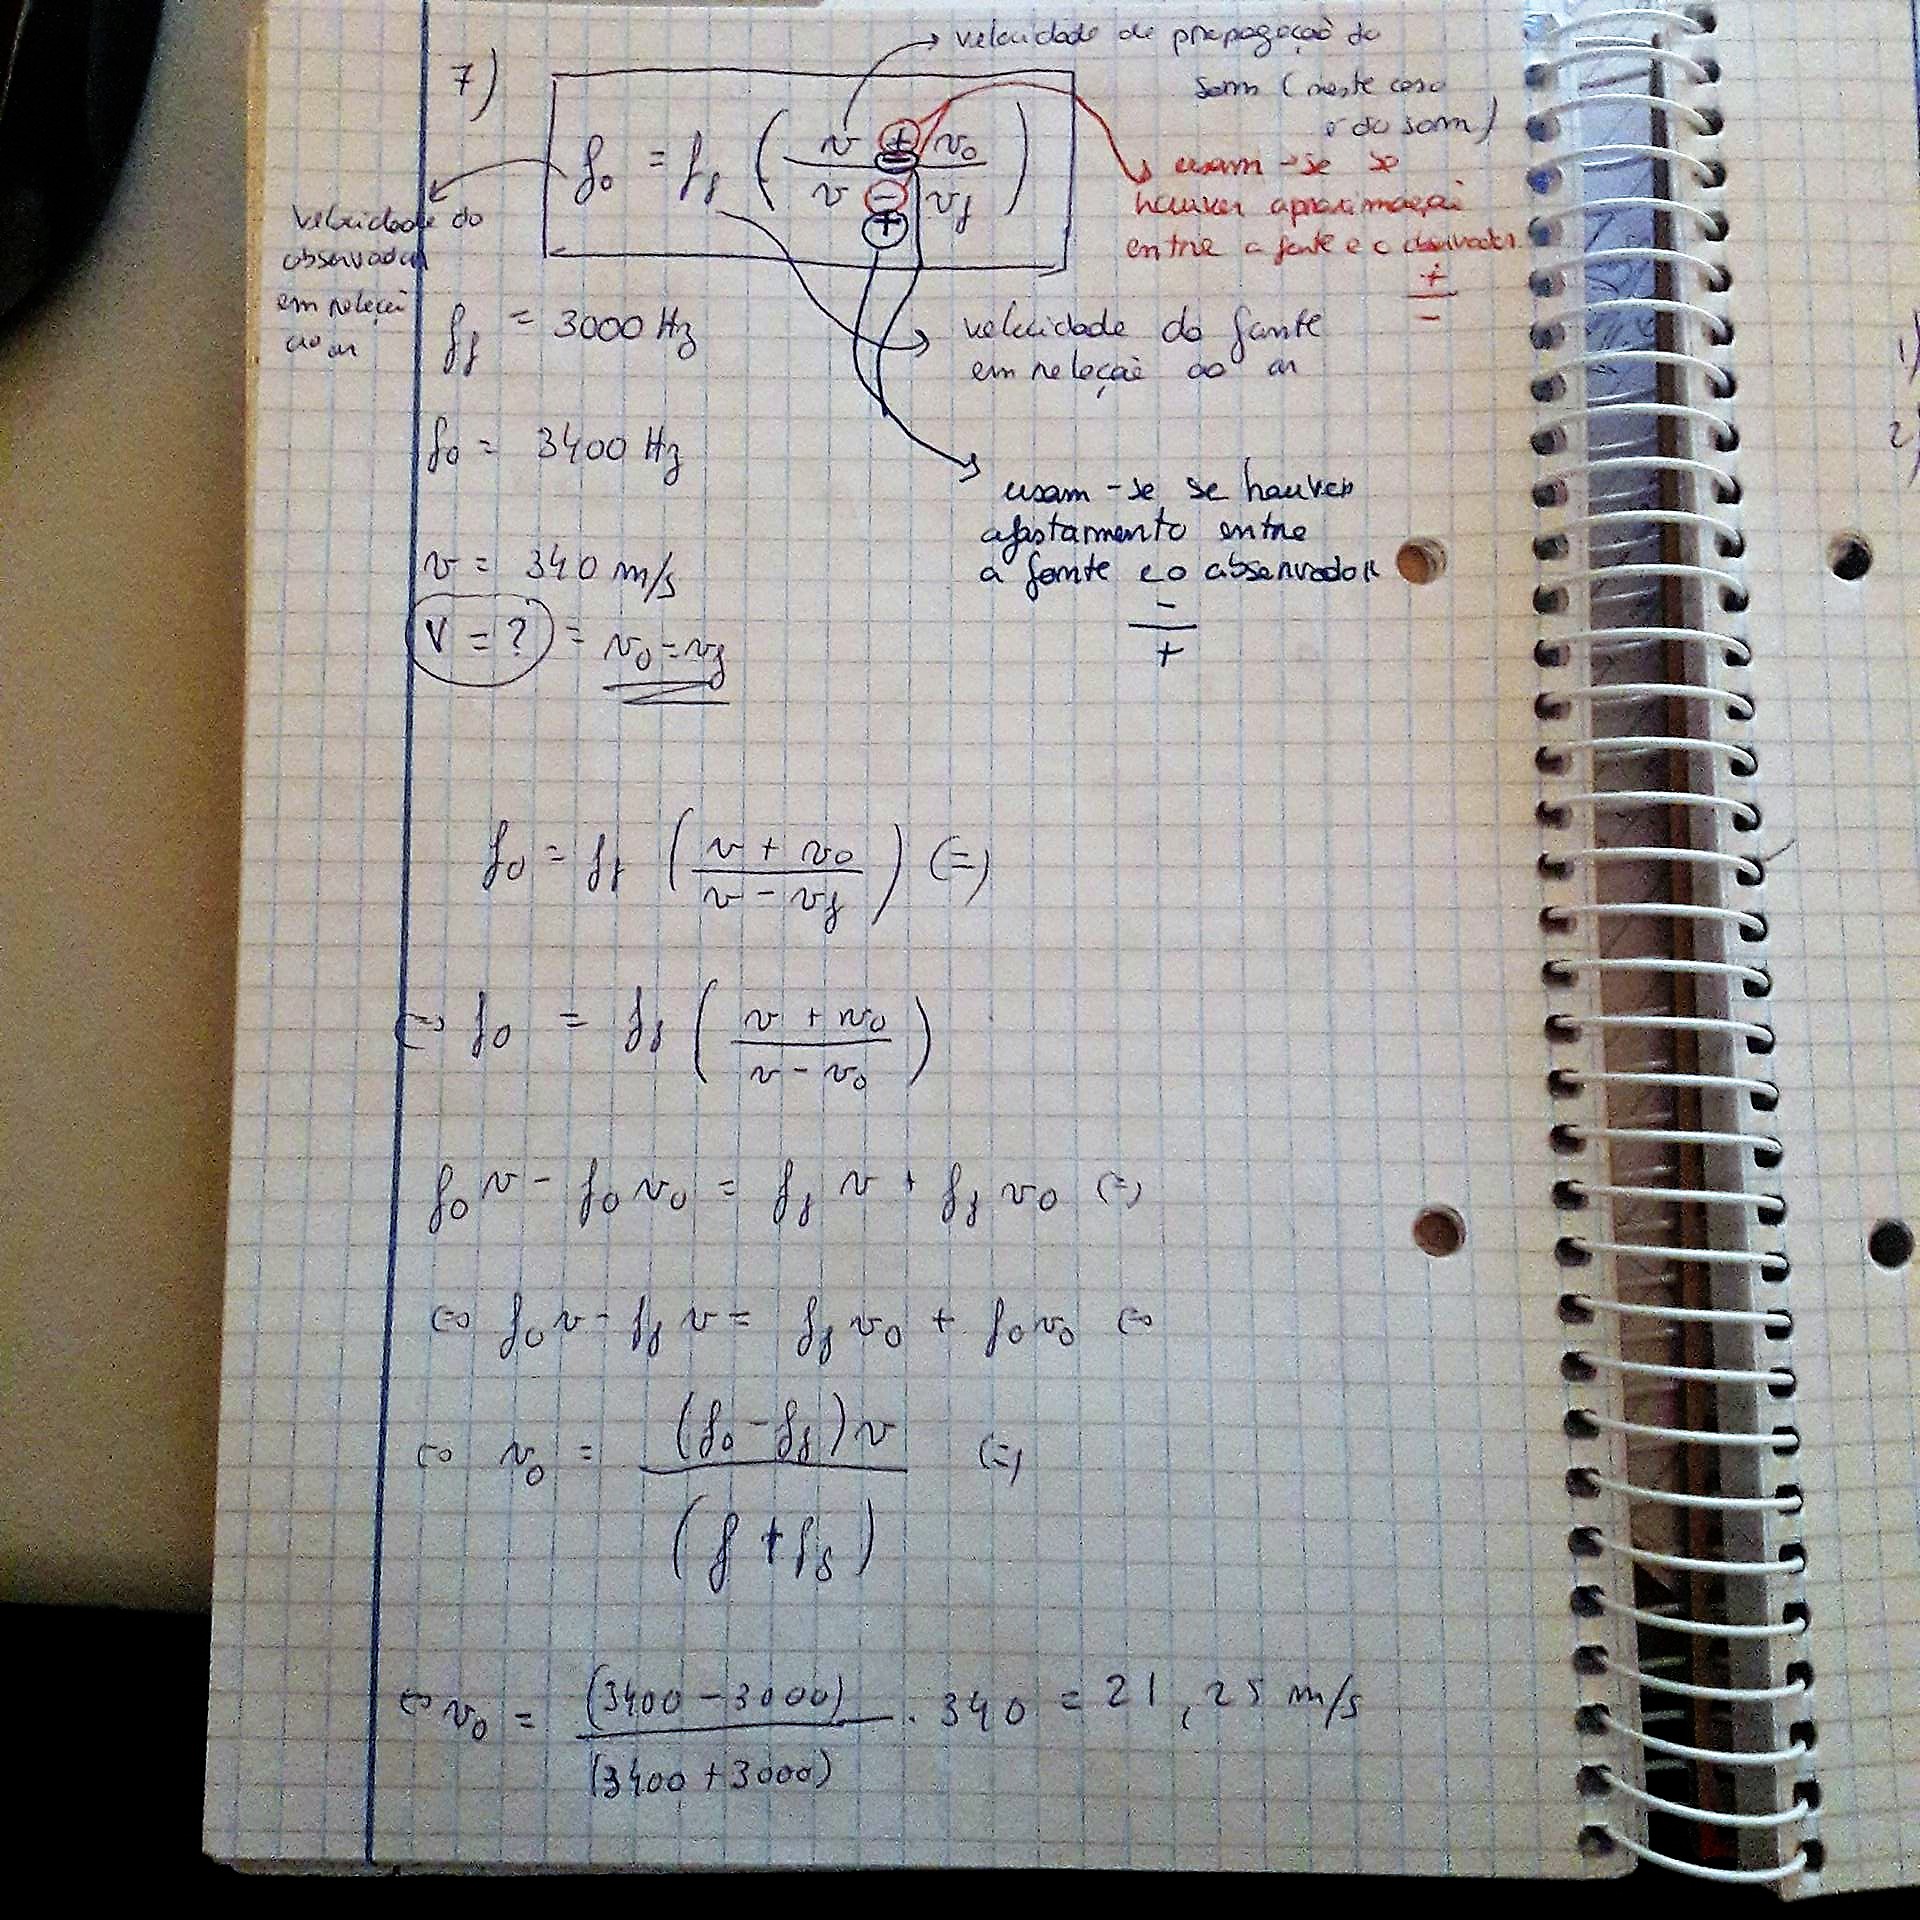 7)
velocidade de propagação do
som (neste caso
é do som)
f₀ = f_f ( (v ± v₀) / (v ∓ v_f) )
usam-se se
houver aproximação
entre a fonte e o observador
+
-
velocidade do
observador
em relação
ao ar
f_f = 3000 Hz
velocidade da fonte
em relação ao ar
f₀ = 3400 Hz
usam-se se houver
afastamento entre
a fonte e o observador
-
+
v = 340 m/s
V = ? = v₀ = v_f
f₀ = f_f ( (v + v₀) / (v - v_f) ) (=)
(=) f₀ = f_f ( (v + v₀) / (v - v₀) )
f₀ v - f₀ v₀ = f_f v + f_f v₀ (=)
(=) f₀ v - f_f v = f_f v₀ + f₀ v₀ (=)
(=) v₀ = (f₀ - f_f) v / (f + f_f) (=)
(=) v₀ = (3400 - 3000) / (3400 + 3000) . 340 = 21,25 m/s
1)
2)